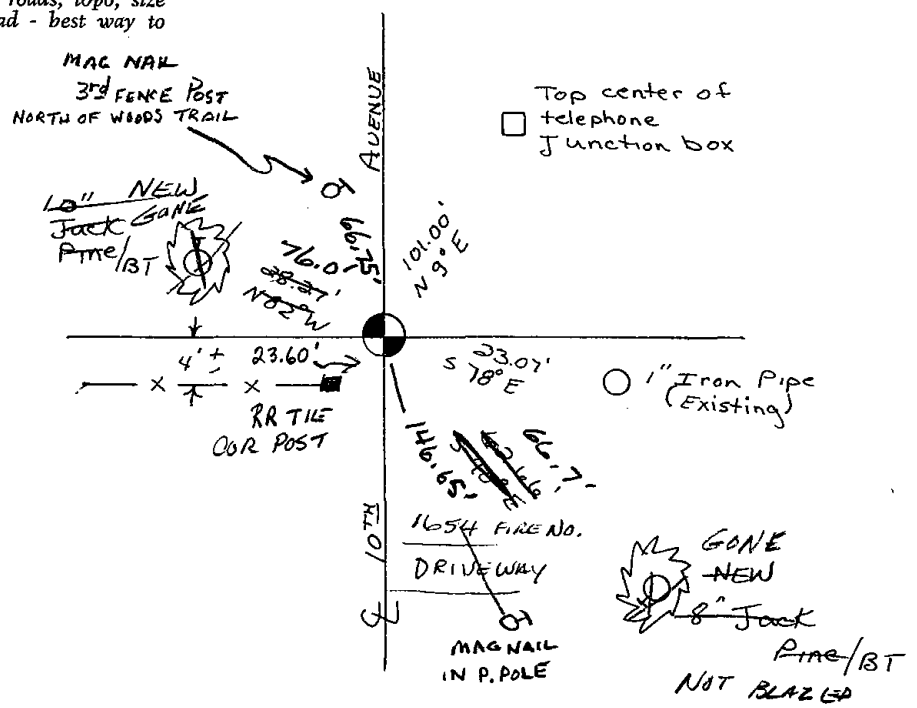 roads, topo, size
ad - best way to
MAG NAIL
3rd FENCE POST
NORTH OF WOODS TRAIL
AVENUE
Top center of
telephone
Junction box
10" NEW
Jack GONE
Pine/BT
66.75'
76.0'
28.27'
N82°W
101.00'
N 9° E
4' ±
23.60'
23.07'
S 78° E
1" Iron Pipe
(Existing)
RR TILE
COR POST
146.65'
66.7'
10TH
1654 FIRE NO.
DRIVEWAY
MAG NAIL
IN P. POLE
GONE
NEW
8" Jack
Pine/BT
NOT BLAZED